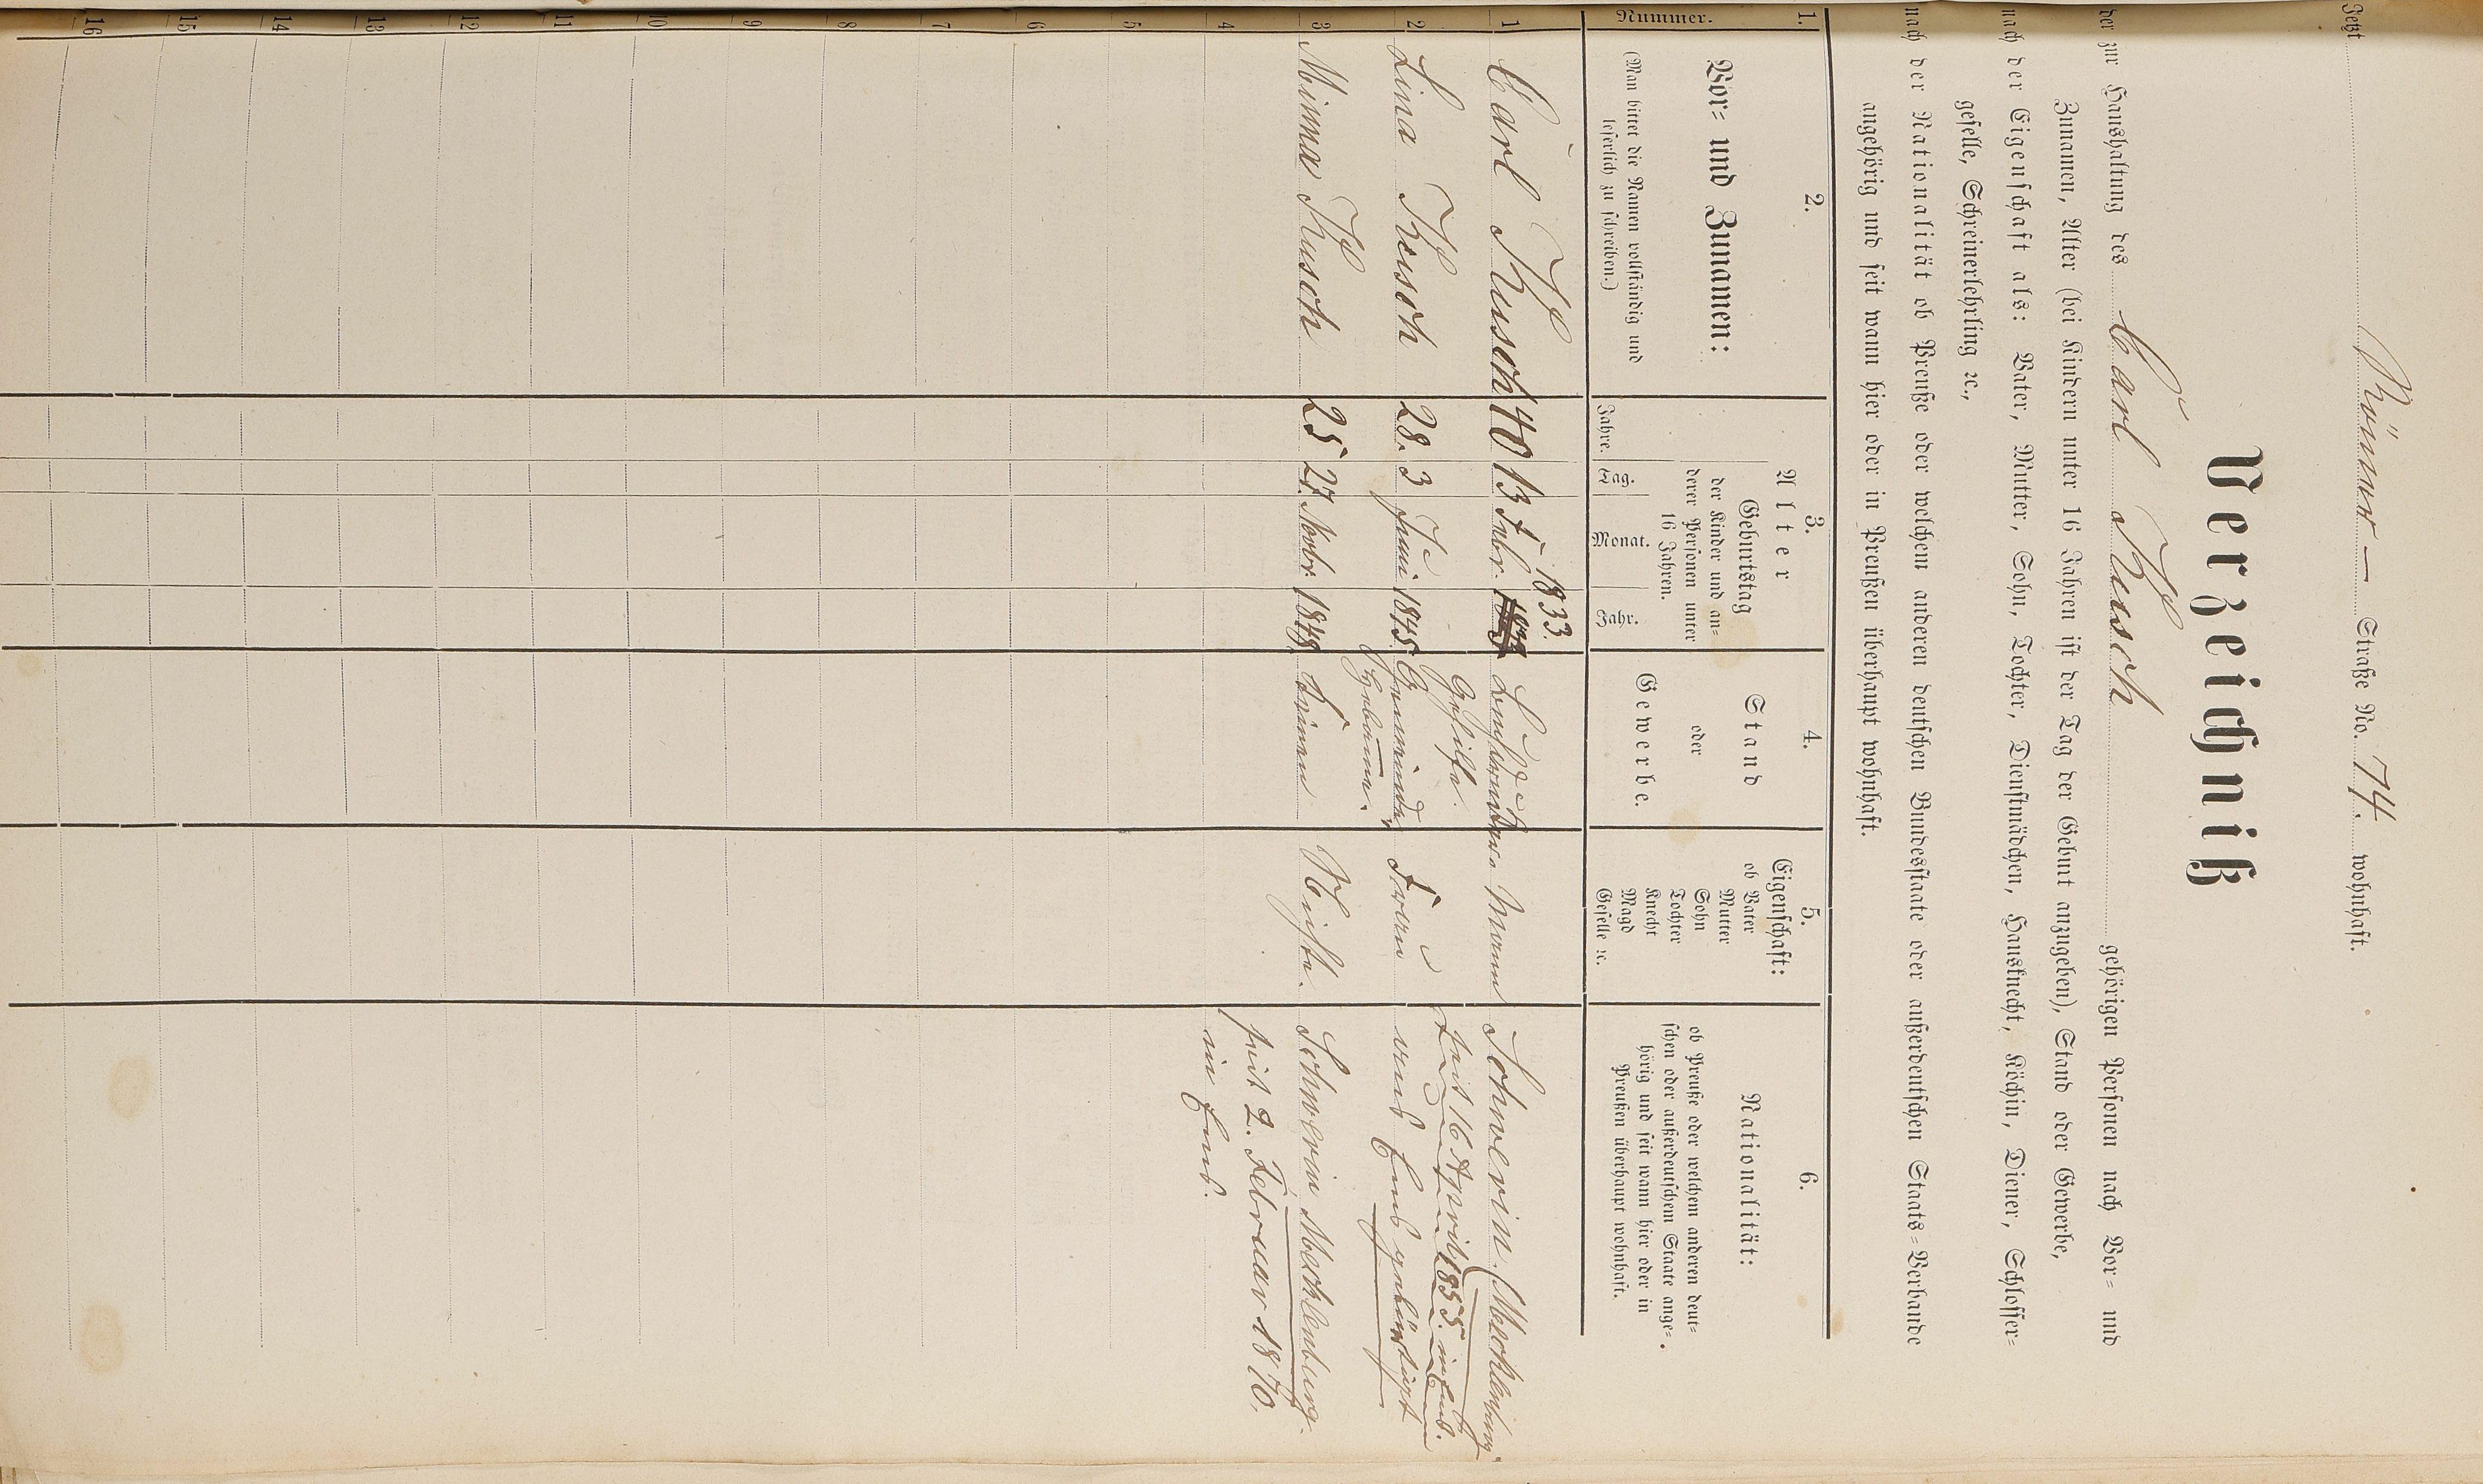 Jetzt Römer- Straße No. 74. wohnhaft.
Verzeichniß
der zur Haushaltung des Carl Kusch gehörigen Personen nach Vor- und
Zunamen, Alter (bei Kindern unter 16 Jahren ist der Tag der Geburt anzugeben), Stand oder Gewerbe,
nach der Eigenschaft als: Vater, Mutter, Sohn, Tochter, Dienstmädchen, Hausknecht, Köchin, Diener, Schlosser-
geselle, Schreinerlehrling ꝛc.,
nach der Nationalität ob Preuße oder welchem anderen deutschen Bundesstaate oder außerdeutschen Staats-Verbande
angehörig und seit wann hier oder in Preußen überhaupt wohnhaft.
1. 2. 3. 4. 5. 6.
Nummer.
Vor- und Zunamen:
(Man bittet die Namen vollständig und
leserlich zu schreiben.)
Alter
Geburtstag
der Kinder und an-
derer Personen unter
16 Jahren.
Jahre. Tag. Monat. Jahr.
Stand
oder
Gewerbe.
Eigenschaft:
ob Vater
Mutter
Sohn
Tochter
Knecht
Magd
Geselle ꝛc.
Nationalität:
ob Preuße oder welchem anderen deut-
schen oder außerdeutschem Staate ange-
hörig und seit wann hier oder in
Preußen überhaupt wohnhaft.
1833.
1 Carl Kusch 40 13 Febr. Mann Schwerin (Mecklenburg
Gehilfe. seit 16 April 1855. in Ems.
2 Lina Kusch 28. 3 Juni 1845. Frau aus Ems gebürtigt
3 Minna Kusch 25 27. Novbr. 1848. Nichte. Schwerin Mecklenburg.
seit 2. Februar 1870.
4 in Ems.
5
6
7
8
9
10
11
12
13
14
15
16